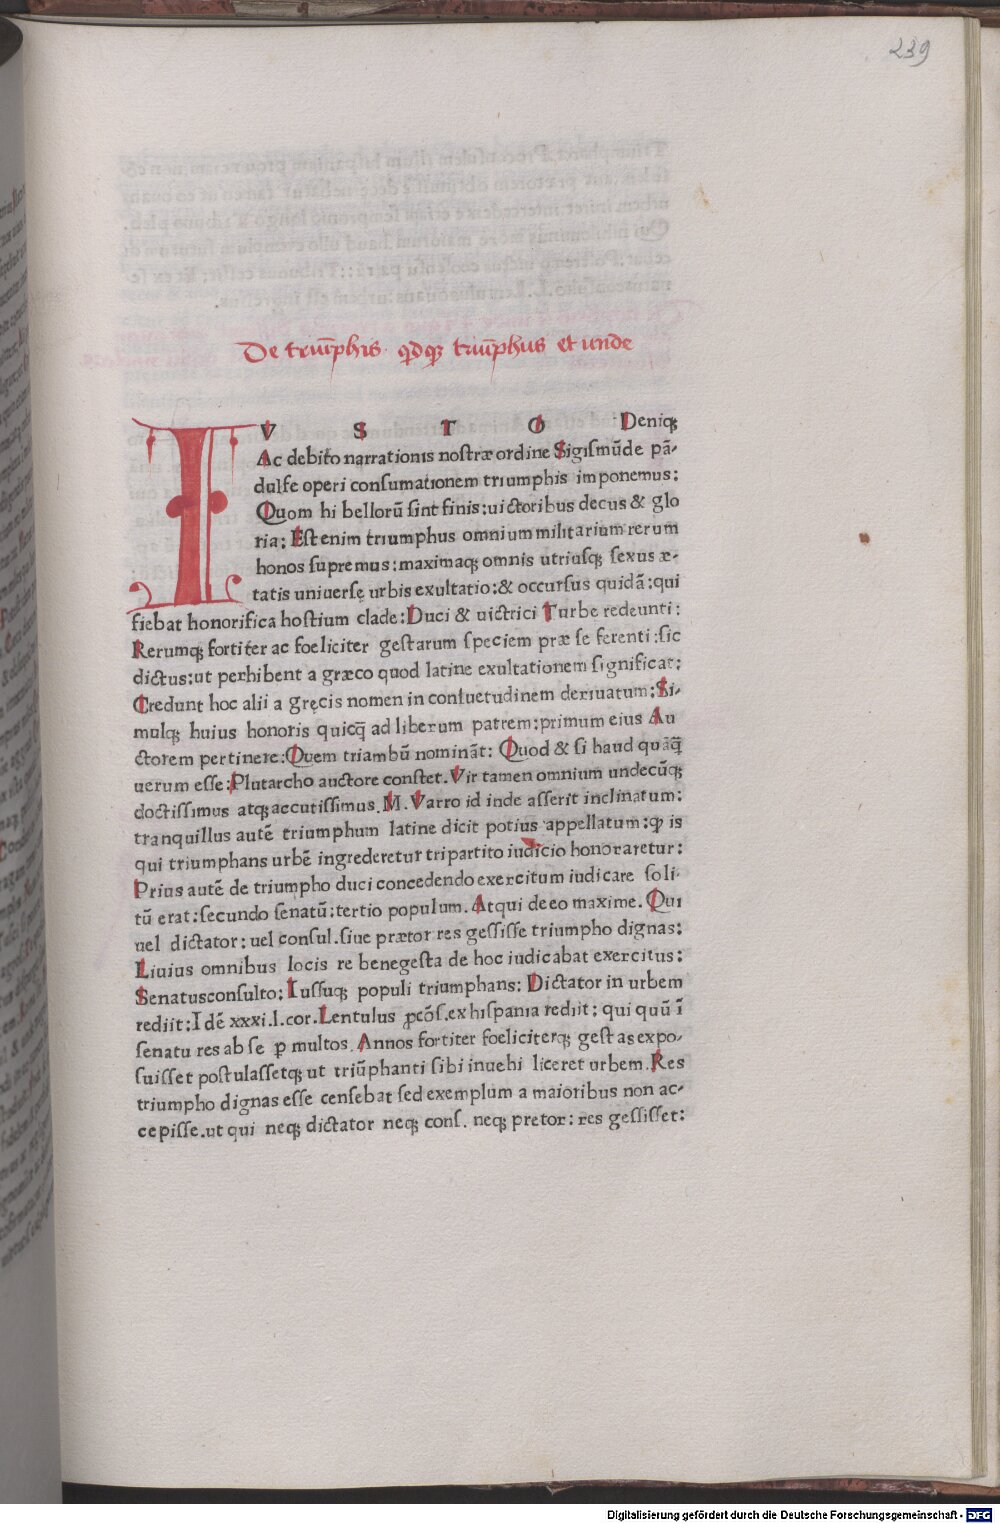 239
De triūphis qdqꝫ triūphus et unde
IVSTO Deniqꝫ
Ac debito narrationis nostræ ordine Sigismūde pā-
dulfe operi consumationem triumphis imponemus:
Quom hi bellorū sint finis: uictoribus decus & glo
ria: Est enim triumphus omnium militarium rerum
honos supremus: maximaqꝫ omnis utriusqꝫ sexus æ-
tatis uniuersę urbis exultatio: & occursus quidā: qui
fiebat honorifica hostium clade: Duci & uictrici Turbe redeunti:
Rerumqꝫ fortiter ac foeliciter gestarum speciem præ se ferenti: sic
dictus: ut perhibent a græco quod latine exultationem significat:
Credunt hoc alii a gręcis nomen in consuetudinem deriuatum: Si-
mulqꝫ huius honoris quicq̄ ad liberum patrem: primum eius Au
ctorem pertinere: Quem triambū nomināt: Quod & si haud quāq̄
uerum esse: Plutarcho auctore constet. Vir tamen omnium undecūqꝫ
doctissimus atqꝫ accutissimus. M. Varro id inde asserit inclinatum:
tranquillus autē triumphum latine dicit potius appellatum: ꝙ is
qui triumphans urbē ingrederetur tripartito iudicio honoraretur:
Prius autē de triumpho duci concedendo exercitum iudicare soli-
tū erat: secundo senatū: tertio populum. Atqui de eo maxime. Qui
uel dictator: uel consul. siue prætor res gessisse triumpho dignas:
Liuius omnibus locis re benegesta de hoc iudicabat exercitus:
Senatusconsulto: Iussuqꝫ populi triumphans: Dictator in urbem
rediit: I dē xxxi. l. cor. Lentulus ꝓcōs. ex hispania rediit: qui quū ī
senatu res ab se ꝑ multos. Annos fortiter foeliciterqꝫ gestas expo-
suisset postulassetqꝫ ut triūphanti sibi inuehi liceret urbem. Res
triumpho dignas esse censebat sed exemplum a maioribus non ac-
cepisse. ut qui neqꝫ dictator neqꝫ cons. neqꝫ pretor: res gessisset:
Digitalisierung gefördert durch die Deutsche Forschungsgemeinschaft - DFG